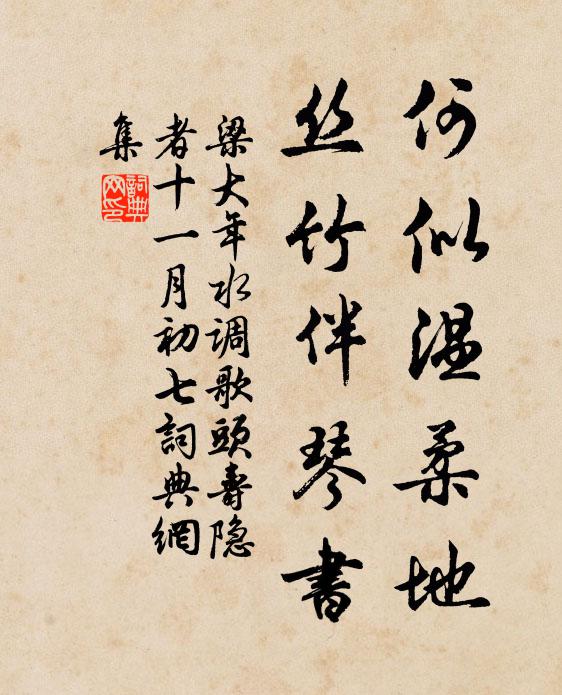 何似温柔地
丝竹伴琴書
梁大年水调歌頭壽隐
者十一月初七詞典網
集
詞典
网印